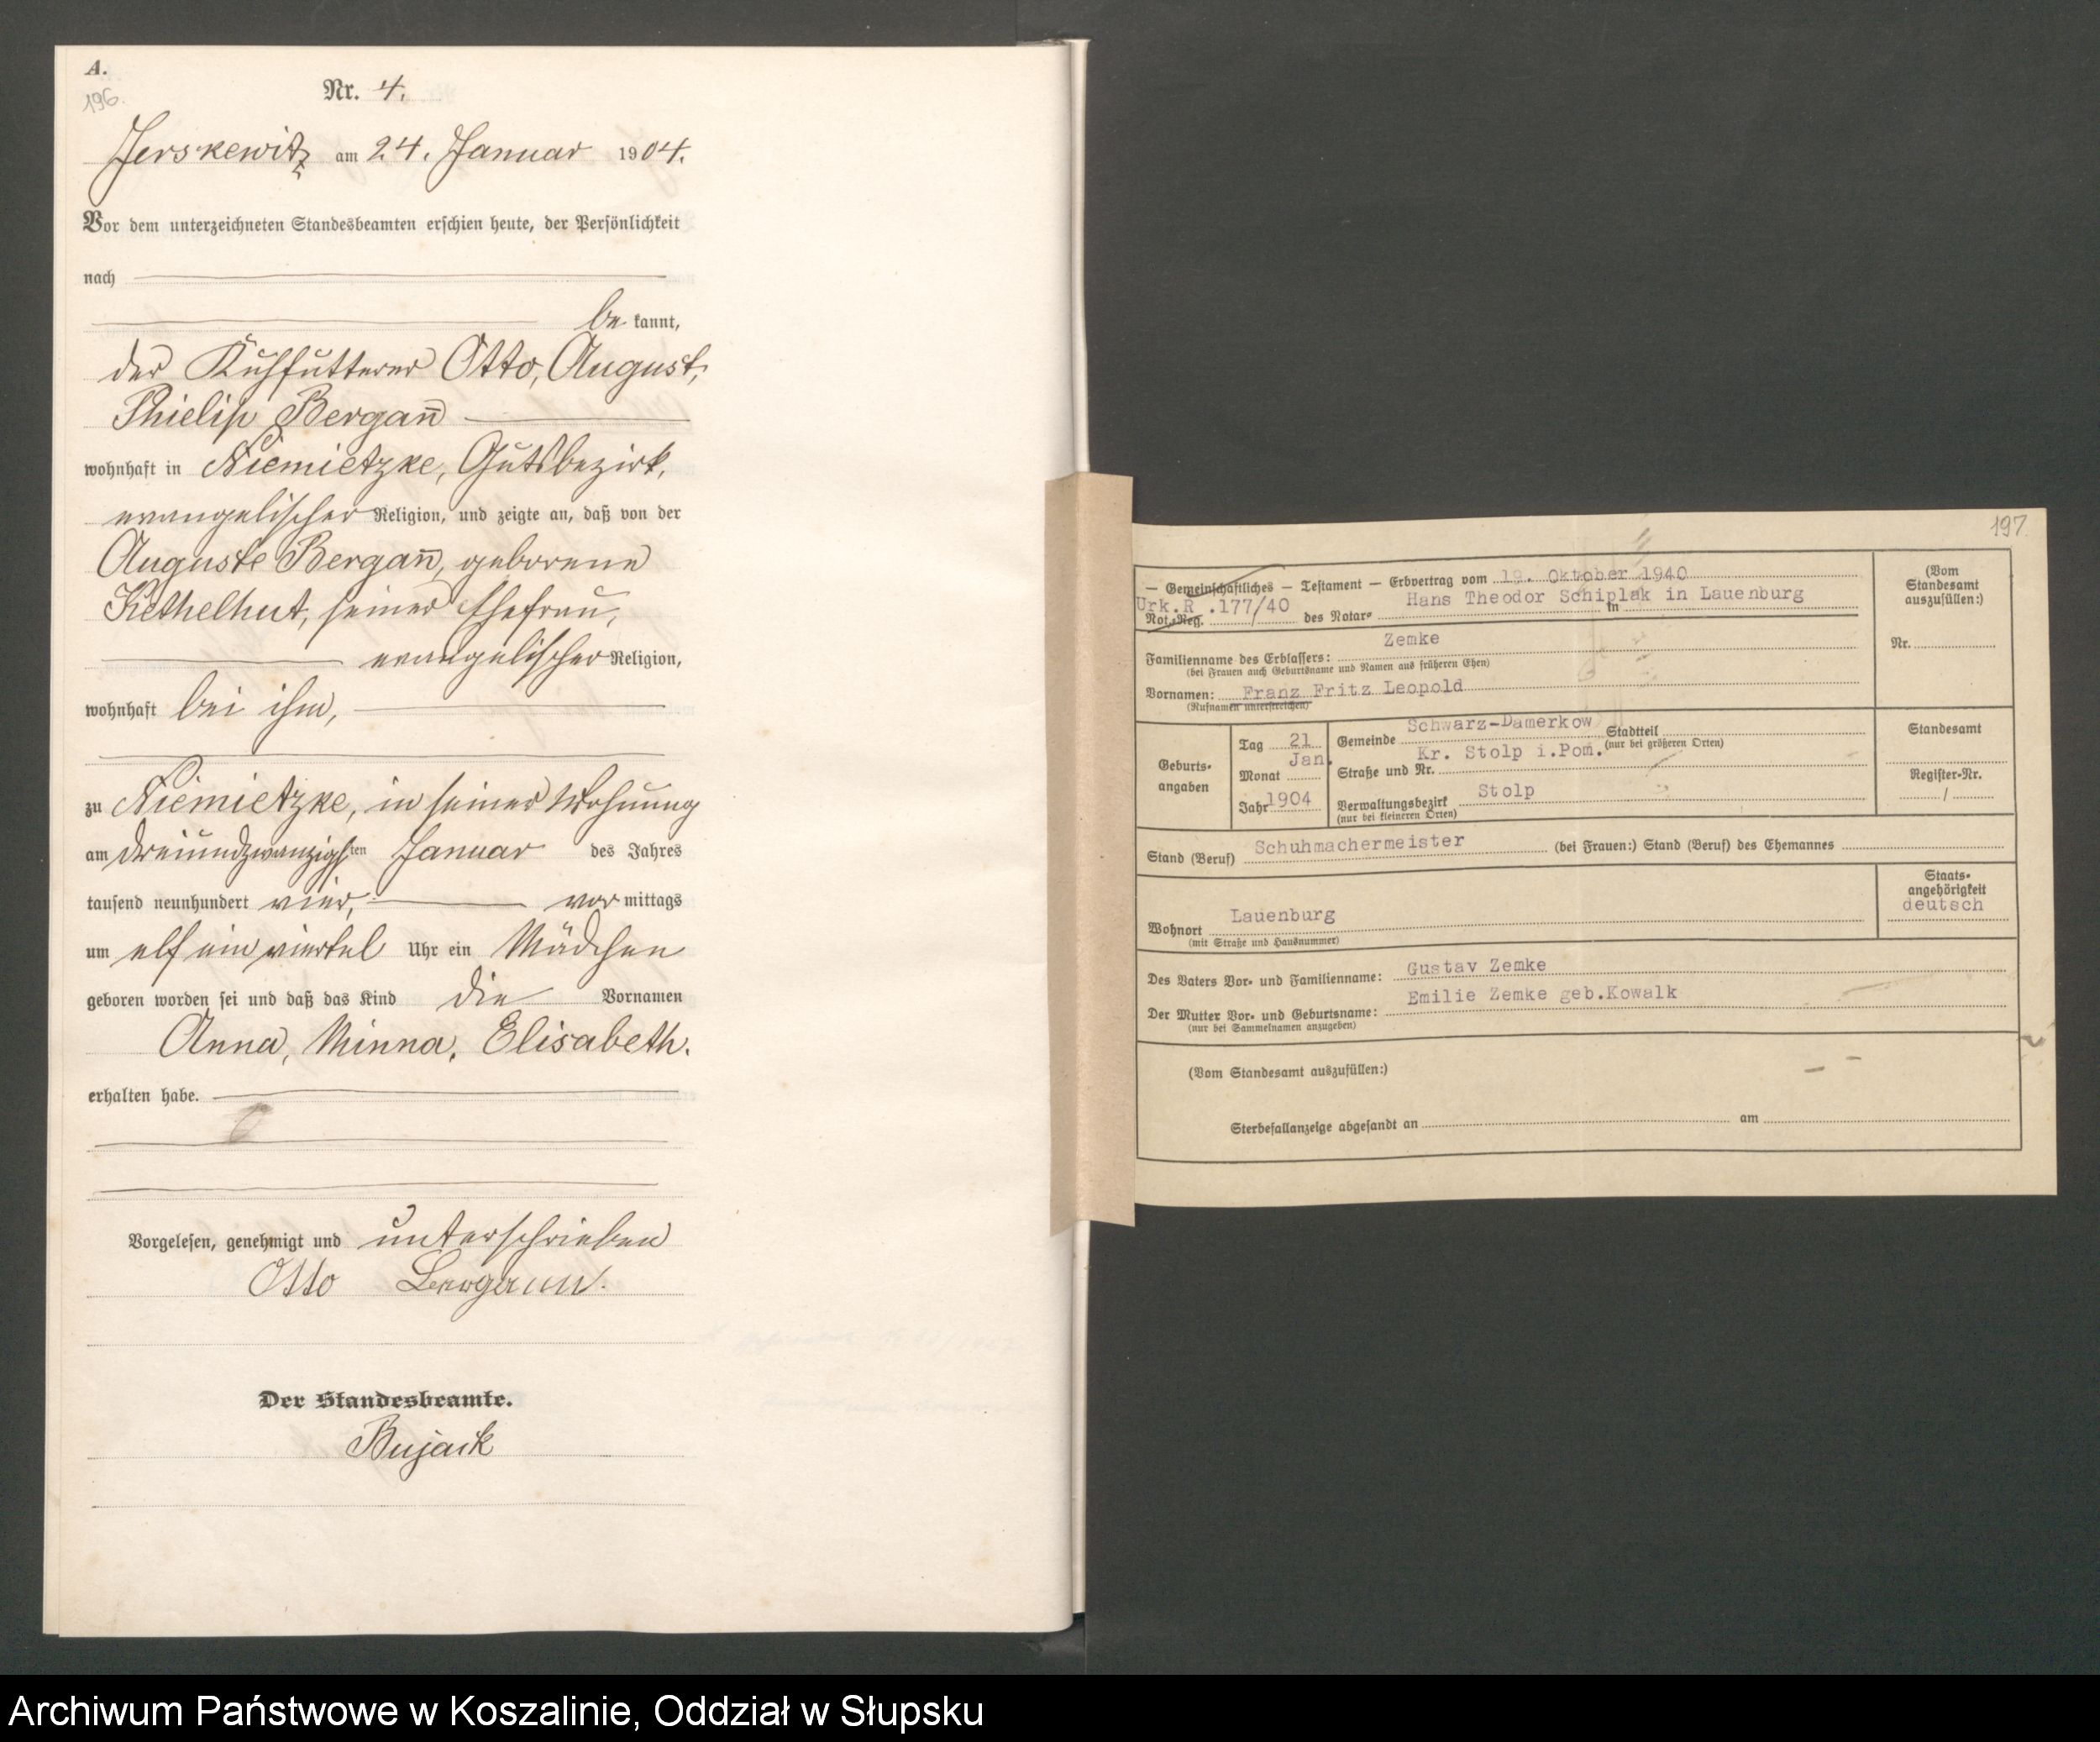 A.
196.
Nr. 4.
Jerskewitz am 24. Januar 1904.
Vor dem unterzeichneten Standesbeamten erschien heute, der Persönlichkeit
nach
be kannt,
der Kuhfutterer Otto, August,
Phielip Bergan̅
wohnhaft in Niemietzke, Gutsbezirk,
evangelischer Religion, und zeigte an, daß von der
Auguste Bergan̅, geborene
Kethelhut, seiner Ehefrau,
evangelischer Religion,
wohnhaft bei ihm,
zu Niemietzke, in seiner Wohnung
am dreiundzwanzigsten Januar des Jahres
tausend neunhundert vier, vor mittags
um elf ein viertel Uhr ein Mädchen
geboren worden sei und daß das Kind die Vornamen
Anna, Minna, Elisabeth.
erhalten habe.
Vorgelesen, genehmigt und unterschrieben
Otto Bergann.
Der Standesbeamte.
Bujack
197
— Gemeinschaftliches — Testament — Erbvertrag vom 19. Oktober 1940
(Vom Standesamt auszufüllen:)
Urk.R .177/40 Hans Theodor Schiplak in Lauenburg
Not.-Reg. des Notars in
Zemke
Nr.
Familienname des Erblassers:
(bei Frauen auch Geburtsname und Namen aus früheren Ehen)
Vornamen: Franz Fritz Leopold
(Rufnamen unterstreichen)
Geburts-
angaben
Tag 21
Jan.
Monat
Jahr 1904
Schwarz-Damerkow
Gemeinde Stadtteil
(nur bei größeren Orten)
Kr. Stolp i.Pom.
Straße und Nr.
Stolp
Verwaltungsbezirk
(nur bei kleineren Orten)
Standesamt
Register-Nr.
/
Schuhmachermeister
Stand (Beruf) (bei Frauen:) Stand (Beruf) des Ehemannes
Lauenburg
Wohnort
(mit Straße und Hausnummer)
Staats-
angehörigkeit
deutsch
Des Vaters Vor- und Familienname: Gustav Zemke
Emilie Zemke geb.Kowalk
Der Mutter Vor- und Geburtsname:
(nur bei Sammelnamen anzugeben)
(Vom Standesamt auszufüllen:)
Sterbefallanzeige abgesandt an am
Archiwum Państwowe w Koszalinie, Oddział w Słupsku